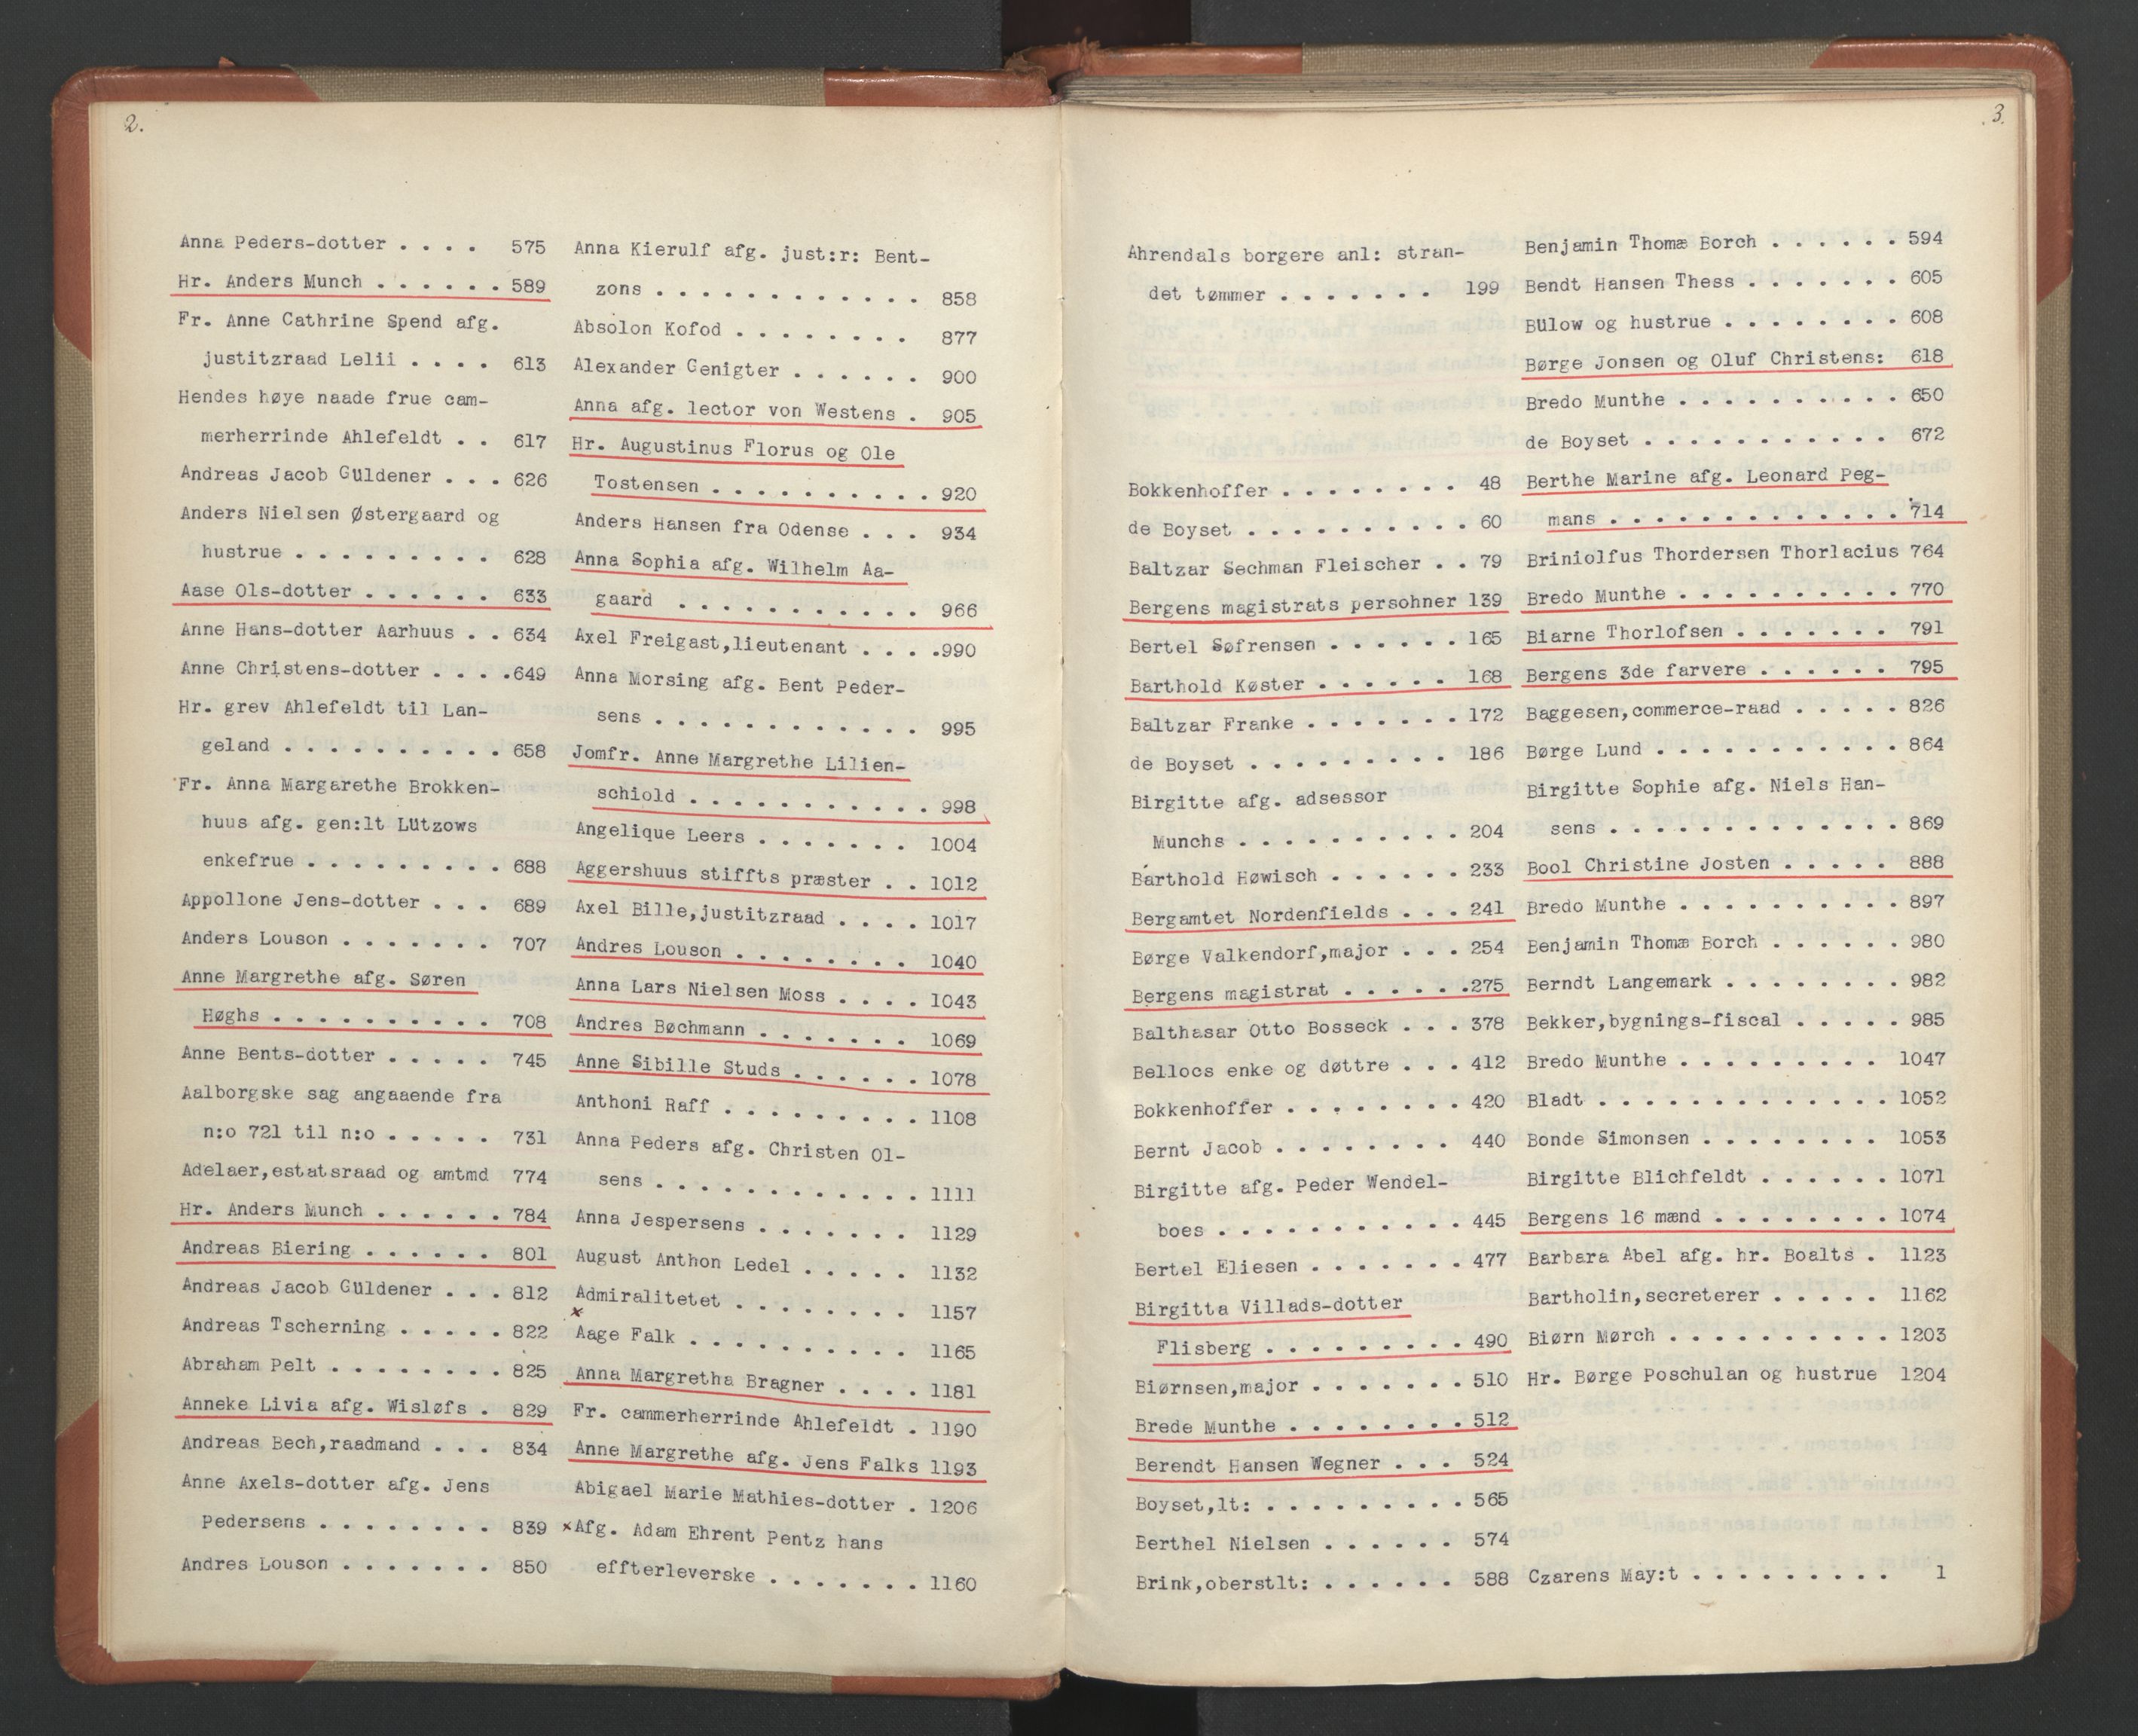 2.
Anna Peders-dotter . . . . 575
Hr. Anders Munch . . . . . . 589
Fr. Anne Cathrine Spend afg.
justitzraad Lelii . . . . 613
Hendes høye naade frue cam-
merherrinde Ahlefeldt . . 617
Andreas Jacob Güldener . . . 626
Anders Nielsen Østergaard og
hustrue . . . . . . . . . 628
Aase Ols-dotter . . . . . . 633
Anne Hans-dotter Aarhuus . . 634
Anne Christens-dotter . . . .649
Hr. grev Ahlefeldt til Lan-
geland . . . . . . . . . . 658
Fr. Anna Margarethe Brokken-
huus afg. gen:lt Lützows
enkefrue . . . . . . . . . 688
Appollone Jens-dotter . . . 689
Anders Louson . . . . . . . 707
Anne Margrethe afg. Søren
Høghs . . . . . . . . . . 708
Anne Bents-dotter . . . . . 745
Aalborgske sag angaaende fra
n:o 721 til n:o . . . . . 731
Adelaer,estatsraad og amtmd 774
Hr. Anders Munch . . . . . . 784
Andreas Biering . . . . . . 801
Andreas Jacob Güldener . . . 812
Andreas Tscherning . . . . . 822
Abraham Pelt . . . . . . . . 825
Anneke Livia afg. Wisløfs . 829
Andreas Bech,raadmand . . . 834
Anne Axels-dotter afg. Jens
Pedersens . . . . . . . . 839
Andres Louson . . . . . . . 850
Anna Kierulf afg. just:r: Bent-
zons . . . . . . . . . . . . 858
Absolon Kofod . . . . . . . . 877
Alexander Genigter . . . . . . 900
Anna afg. lector von Westens . 905
Hr. Augustinus Florus og Ole
Tostensen . . . . . . . . . . 920
Anders Hansen fra Odense . . . 934
Anna Sophia afg. Wilhelm Aa-
gaard . . . . . . . . . . . 966
Axel Freigast,lieutenant . . . .990
Anna Morsing afg. Bent Peder-
sens . . . . . . . . . . . . 995
Jomfr. Anne Margrethe Lilien-
schiold . . . . . . . . . . . 998
Angelique Leers . . . . . . . 1004
Aggershuus stiffts præster . . 1012
Axel Bille,justitzraad . . . . 1017
Andres Louson . . . . . . . . 1040
Anna Lars Nielsen Moss . . . . 1043
Andres Bøchmann . . . . . . . 1069
Anne Sibille Studs . . . . . . 1078
Anthoni Raff . . . . . . . . . 1108
Anna Peders afg. Christen Ol-
sens . . . . . . . . . . . . 1111
Anna Jespersens . . . . . . . 1129
August Anthon Ledel . . . . . 1132
Admiralitetet . . . . . . . . 1157
x
Aage Falk . . . . . . . . . . 1165
Anna Margretha Bragner . . . . 1181
Fr. cammerherrinde Ahlefeldt . 1190
Anne Margrethe afg. Jens Falks 1193
Abigael Marie Mathies-dotter . 1206
xAfg. Adam Ehrent Pentz hans
effterleverske . . . . . . . 1160
3.
Ahrendals borgere anl: stran-
det tømmer . . . . . . . 199
Bokkenhoffer . . . . . . . . 48
de Boyset . . . . . . . . . . 60
Baltzar Sechman Fleischer . . 79
Bergens magistrats persohner 139
Bertel Søfrensen . . . . . . 165
Barthold Køster . . . . . . 168
Baltzar Franke . . . . . . . 172
de Boyset . . . . . . . . . 186
Birgitte afg. adsessor
Munchs . . . . . . . . . . 204
Barthold Høwisch . . . . . . 233
Bergamtet Nordenfields . . . 241
Børge Valkendorf,major . . . 254
Bergens magistrat . . . . . .275
Balthasar Otto Bosseck . . . 378
Bellocs enke og døttre . . . 412
Bokkenhoffer . . . . . . . . 420
Bernt Jacob . . . . . . . . 440
Birgitte afg. Peder Wendel-
boes . . . . . . . . . . . 445
Bertel Eliesen . . . . . . . 477
Birgitta Villads-dotter
Flisberg . . . . . . . . . 490
Biørnsen,major . . . . . . . 510
Brede Munthe . . . . . . . . 512
Berendt Hansen Wegner . . . 524
Boyset,lt: . . . . . . . . . 565
Berthel Nielsen . . . . . . 574
Brink,oberstlt: . . . . . . 588
Benjamin Thomæ Borch . . . . . . 594
Bendt Hansen Thess . . . . . . . 605
Bülow og hustrue . . . . . . . . 608
Børge Jonsen og Oluf Christens: 618
Bredo Munthe . . . . . . . . . . 650
de Boyset . . . . . . . . . . . 672
Berthe Marine afg. Leonard Peg-
mans . . . . . . . . . . . . . 714
Briniolfus Thordersen Thorlacius 764
Bredo Munthe . . . . . . . . . . 770
Biarne Thorlofsen . . . . . . . 791
Bergens 3de farvere . . . . . . 795
Baggesen,commerce-raad . . . . . 826
Børge Lund . . . . . . . . . . . 864
Birgitte Sophie afg. Niels Han-
sens . . . . . . . . . . . . . 869
Bool Christine Josten . . . . . 888
Bredo Munthe . . . . . . . . . . 897
Benjamin Thomæ Borch . . . . . . 980
Berndt Langemark . . . . . . . . 982
Bekker,bygnings-fiscal . . . . . 985
Bredo Munthe . . . . . . . . . 1047
Bladt . . . . . . . . . . . . . 1052
Bonde Simonsen . . . . . . . . 1053
Birgitte Blichfeldt . . . . . . 1071
Bergens 16 mænd . . . . . . . . 1074
Barbara Abel afg. hr. Boalts . 1123
Bartholin,secreterer . . . . . 1162
Biørn Mørch . . . . . . . . . . 1203
Hr. Børge Poschulan og hustrue 1204
Czarens May:t . . . . . . . . . 1